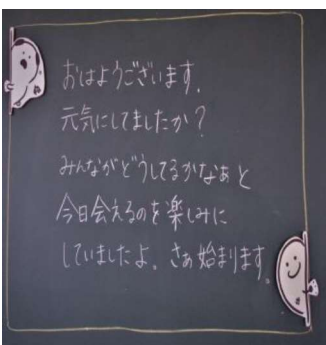 おはようございます。
元気にしてましたか？
みんながどうしてるかなぁと
今日会えるのを楽しみに
していましたよ。さぁ始まります。